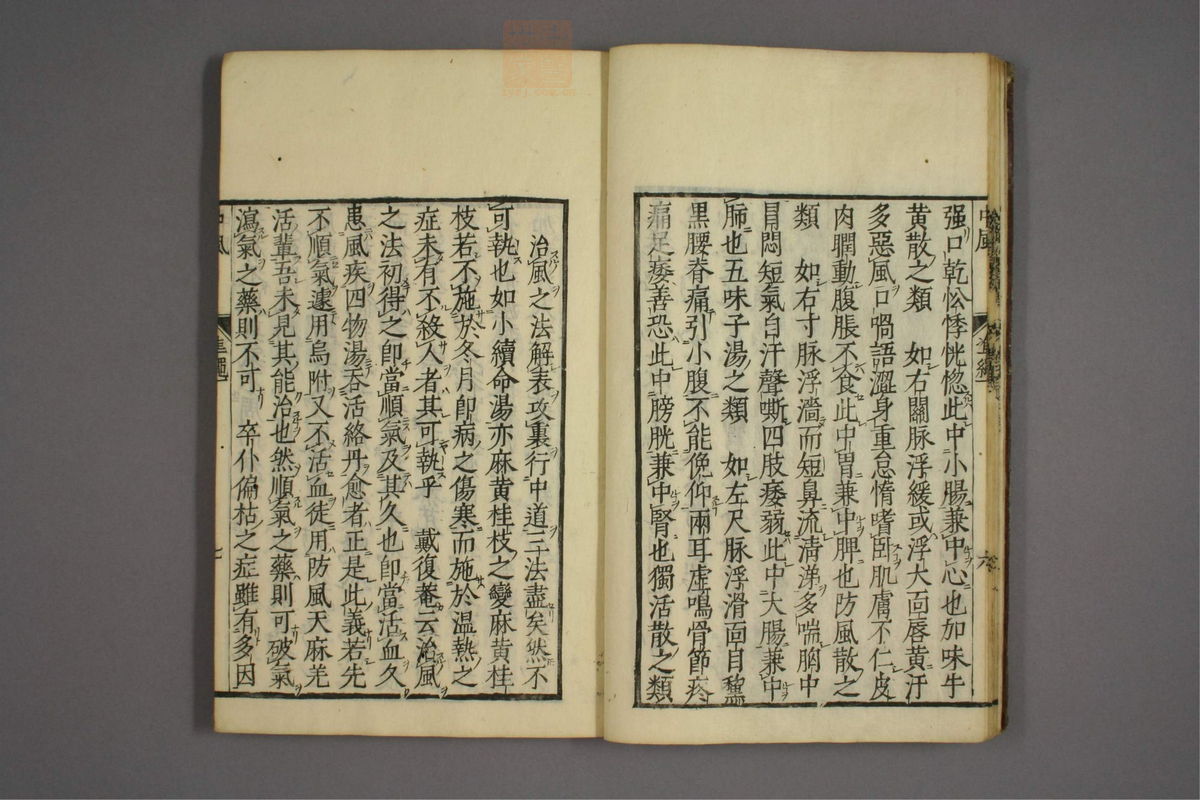 强口乾忪悸恍惚此中小腸兼中心也加味牛
黄散之類　如右關脉浮緩或浮大面唇黄汗
多惡風口喎語澀身重怠惰嗜臥肌膚不仁皮
肉瞤動腹脹不食此中胃兼中脾也防風散之
類　如右寸脉浮濇而短鼻流清涕多喘胸中
冒悶短氣自汗聲嘶四肢痿弱此中大腸兼中
肺也五味子湯之類　如左尺脉浮滑面目黧
黒腰脊痛引小腹不能俛仰兩耳虛鳴骨節疼
痛足痿善恐此中膀胱兼中腎也獨活散之類
中風
六
治風之法解表攻裏行中道三法盡矣然不
可執也如小續命湯亦麻黄桂枝之變麻黄桂
枝若不施於冬月即病之傷寒而施於温熱之
症未有不殺人者其可執乎　戴復菴云治風
之法初得之即當順氣及其久也即當活血久
患風疾四物湯吞活絡丹愈者正是此義若先
不順氣遽用烏附又不活血徒用防風天麻羌
活輩吾未見其能治也然順氣之藥則可破氣
瀉氣之藥則不可　卒仆偏枯之症雖有多因